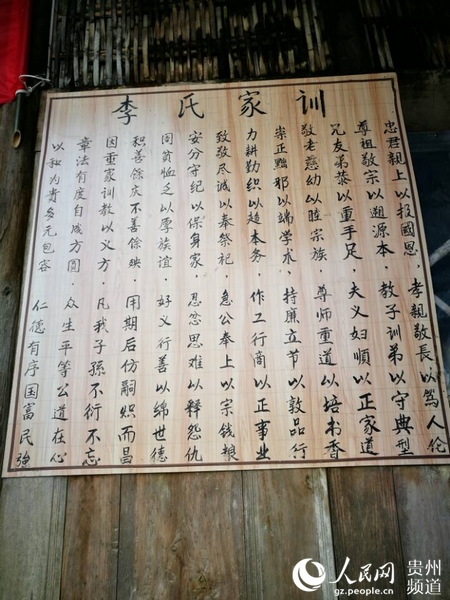 李氏家训
忠君親上以报國恩，孝親敬長以笃人伦
尊祖敬宗以遡源本，教子训弟以守典型
兄友弟恭以重手足，夫义妇順以正家道
敬老慈幼以睦宗族 尊师重道以培书香
崇正黜邪以端学术，持廉立节以敦品行
力耕勤织以趋本务，作工行商以正事业
致敬尽诚以奉祭祀，急公奉上以宗钱粮
安分守纪以保身家，忍忿思难以释怨仇
同贫恤乏以厚族谊，好义行善以绵世德
积善余庆不善余殃，用期后仿嗣炽而昌
因重家训教以义方，凡我子孫不衍不忘
章法有度自成方圆，众生平等公道在心
以和为贵多元包容 仁德有序国富民強
人民网 贵州频道
gz.people.cn